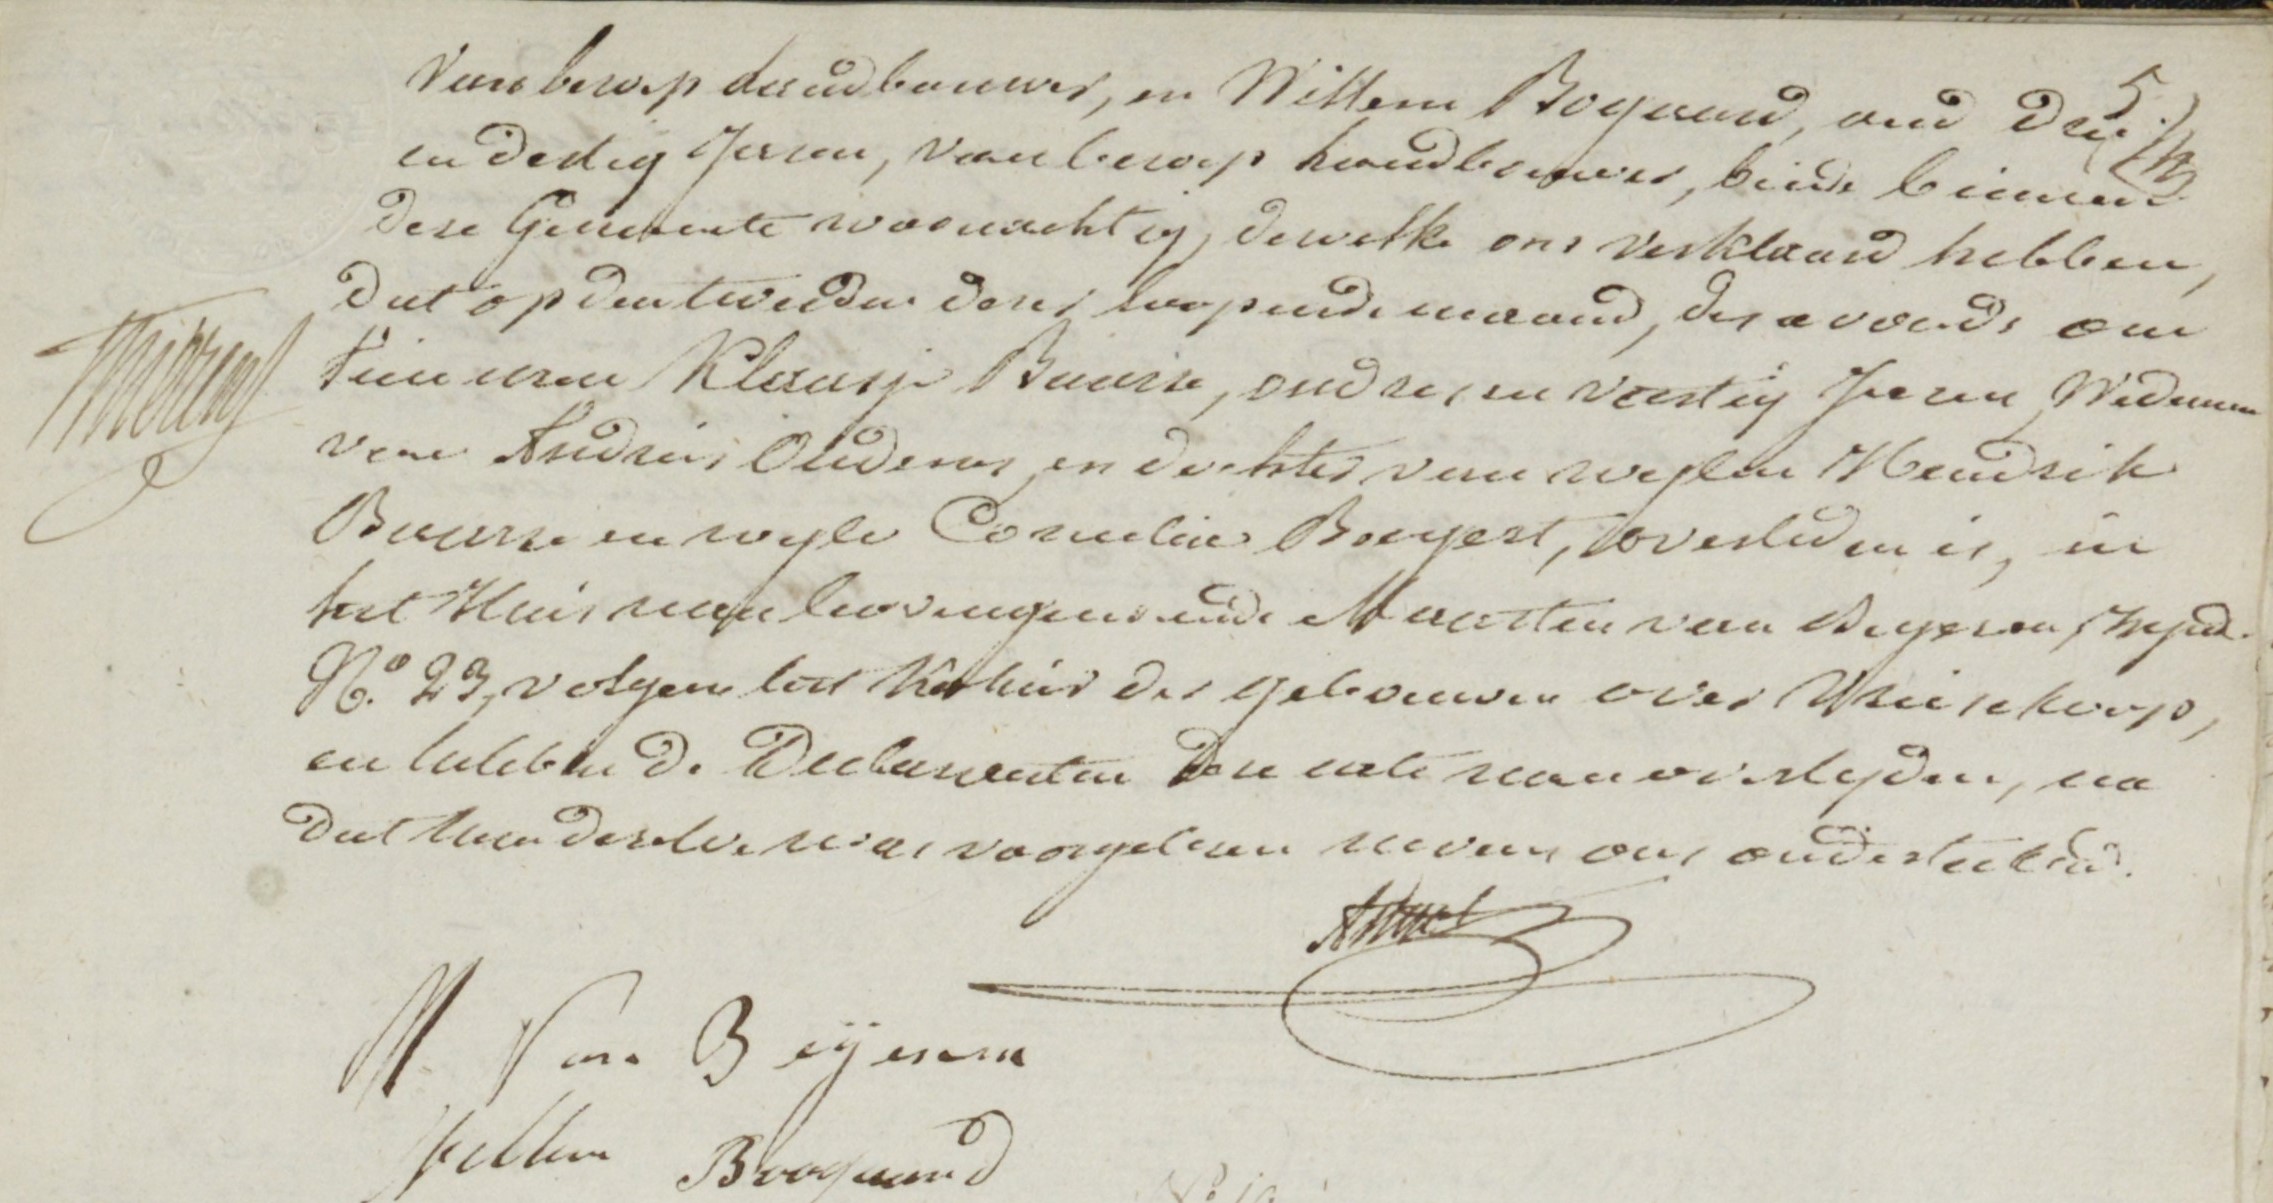 van beroep Landbouwer, en Willem Bogaard, oud drie
en dertig Jaren, van beroep Landbouwer, beide binnen
deze Gemeente woonachtig, dewelke ons verklaard hebben,
dat op den tweeden dezer loopende maand, des avonds om
tien uren Klaasje Buurse, oud zes en veertig Jaren, Weduwe
van Andries Ouderus, en dochter van wylen Hendrik
Buurse en wyle Cornelia Bogert, overleden is, in
het Huis van bovengenoemde Maarten van Beyeren, Wyk
No. 23, volgens het Kohier der gebouwen over
en hebben de Declaranten deze acte van overlyden, na
dat hun dezelve was voorgelezen nevens ons onderteekend.
M Van Beijeren
Willem Boogaard